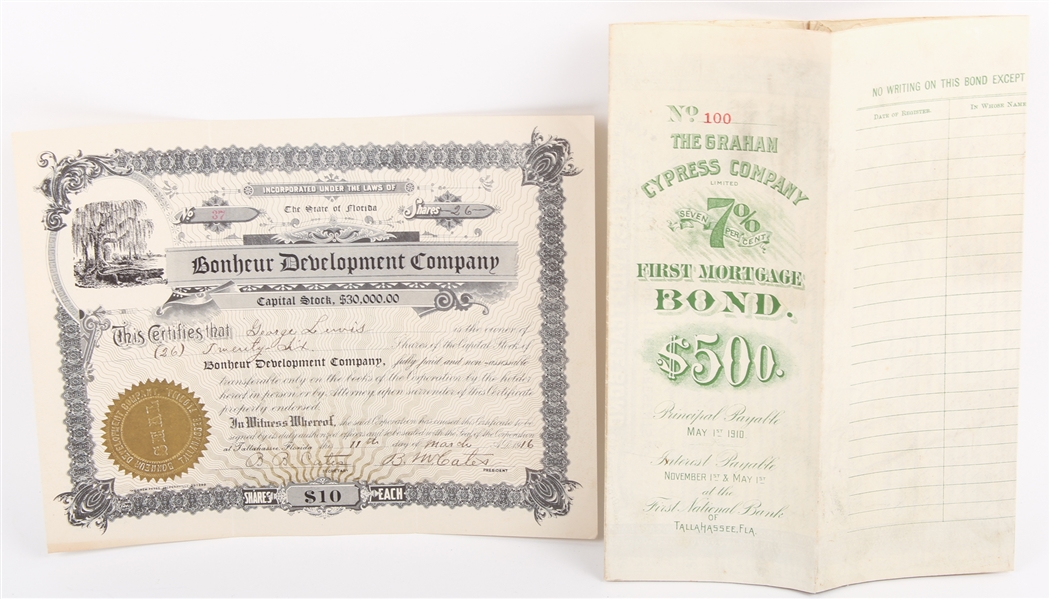 INCORPORATED UNDER THE LAWS OF
No 37
The State of Florida
Shares 26
Bonheur Development Company
Capital Stock, $30,000.00
This Certifies that George Lewis is the owner of
(26) Twenty Six Shares of the Capital Stock of
Bonheur Development Company, fully paid and non-assessable
transferable only on the books of the Corporation by the holder
hereof in person or by Attorney upon surrender of this Certificate
properly endorsed.
In Witness Whereof, the said Corporation has caused this Certificate to be
signed by its duly authorized officers and sealed with the Seal of the Corporation
at Tallahassee, Florida this 11th day of March 16
B. McCates
PRESIDENT
BONHEUR DEVELOPMENT COMPANY
SHARES $10 EACH
No 100
THE GRAHAN
CYPRESS COMPANY
LIMITED
7%
SEVEN PER CENT
FIRST MORTGAGE
BOND.
$500.
Principal Payable
MAY 1ST 1910
Interest Payable
NOVEMBER 1ST & MAY 1ST
at the
First National Bank
OF
TALLAHASSEE, FLA.
NO WRITING ON THIS BOND EXCEPT
DATE OF REGISTER.
IN WHOSE NAME